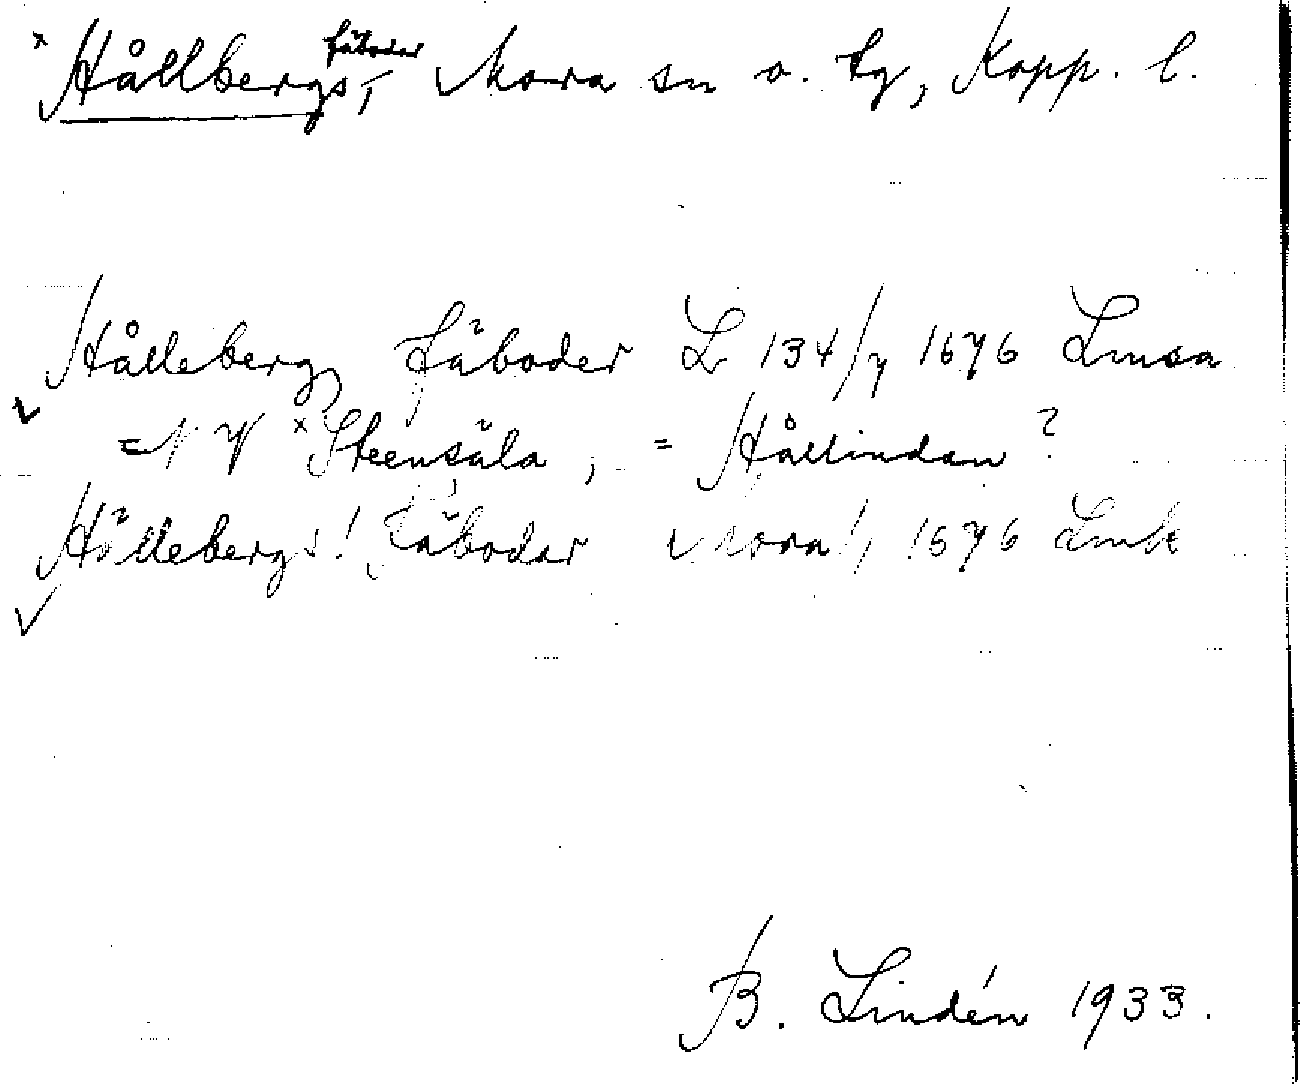 × Hållbergs, fäbodar Mora sn o. tg, Kopp. l.
Hålleberg, fäboder L 134/7 1676 Lmsa
= NV × Steensäla, = Hållindan ?
Hållebergs! fäbodar Mora!, 1676 Lmk
B. Lindén 1933.